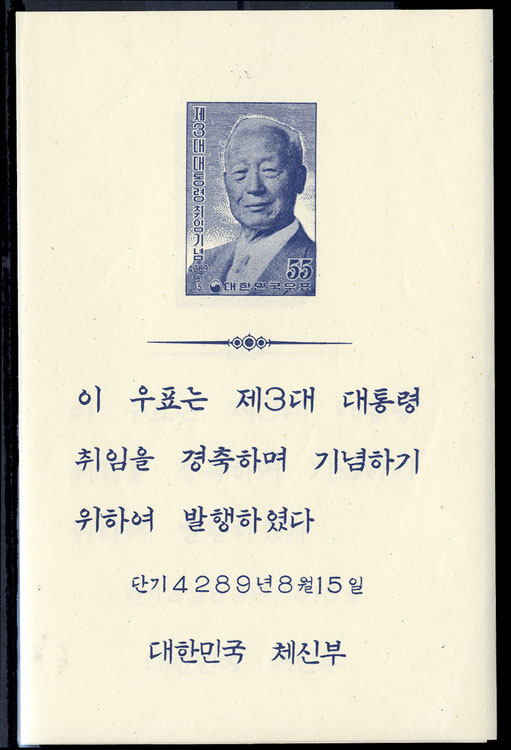 제3대대통령취임기념
4289
8
15
55
대한민국우표
이 우표는 제3대 대통령
취임을 경축하며 기념하기
위하여 발행하였다
단기4289년8월15일
대한민국 체신부